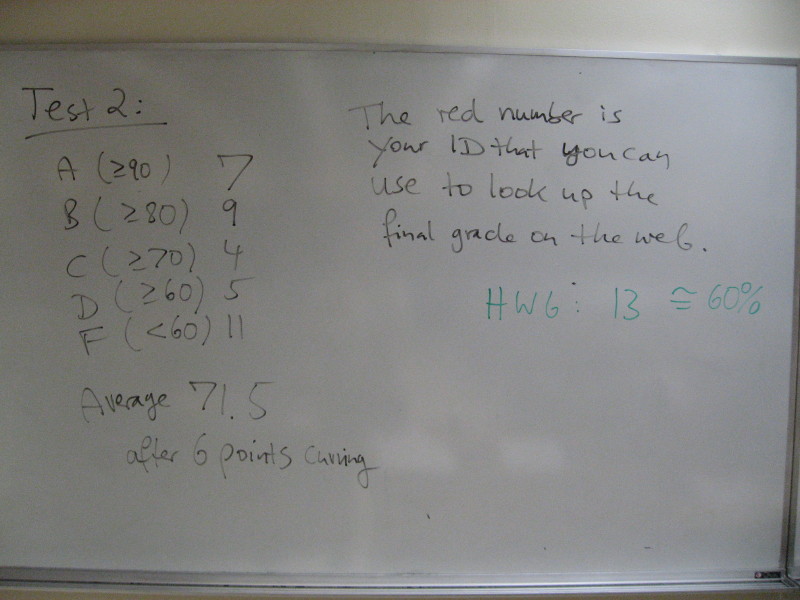 Test 2:
A (≥90) 7
B (≥80) 9
C (≥70) 4
D (≥60) 5
F (<60) 11
Average 71.5
after 6 points curving
The red number is
your ID that you can
use to look up the
final grade on the web.
HW6: 13 ≅ 60%